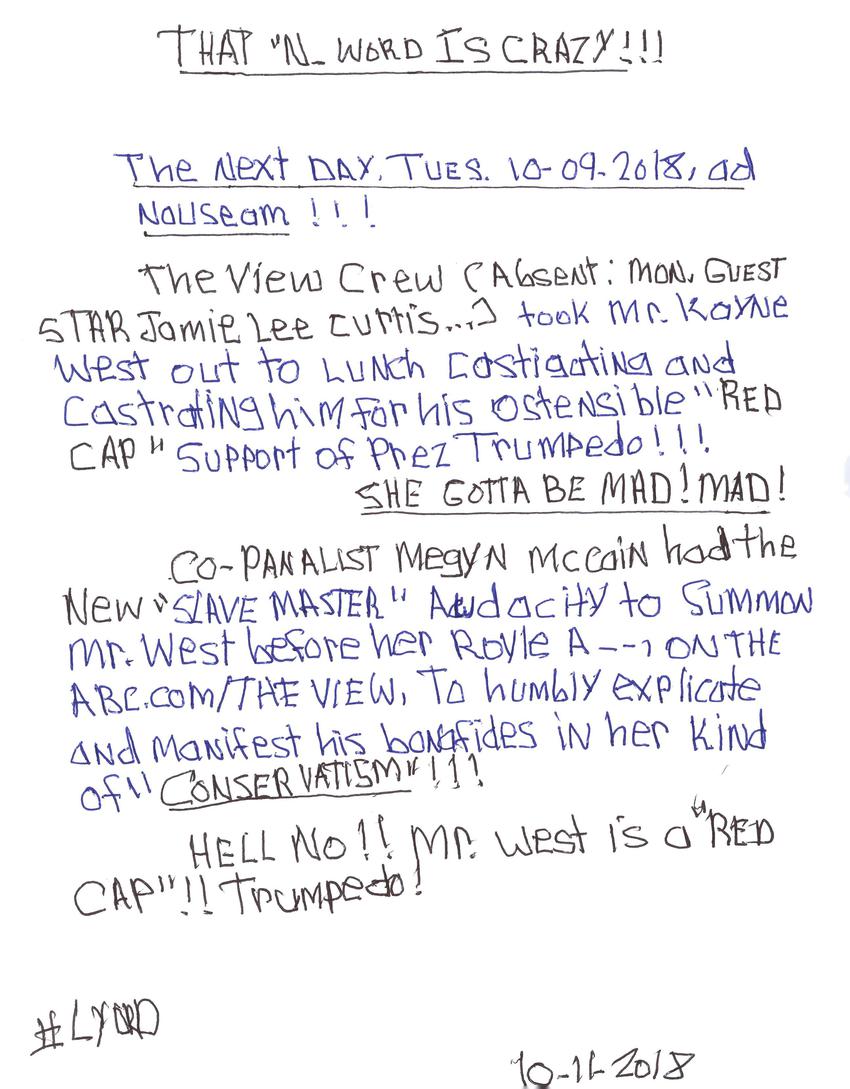 THAT "N_ WORD IS CRAZY!!!
The Next DAY, TUES. 10-09-2018, ad
Nauseam !!!
The View Crew (Absent: MON. GUEST
STAR Jamie Lee Curtis...) took Mr. Kayne
West out to LUNch Castigating and
Castrating him for his ostensible "RED
CAP" Support of Prez Trumpedo!!!
SHE GOTTA BE MAD! MAD!
CO-PANALIST MegyN McCain had the
New "SLAVE MASTER" Audacity to Summon
Mr. West before her Royle A--, ON THE
ABC.com/THE VIEW, To humbly explicate
and Manifest his bonafides in her Kind
of "CONSERVATISM"!!!
HELL NO!! Mr. West is a "RED
CAP"!! Trumpedo!
10-11-2018